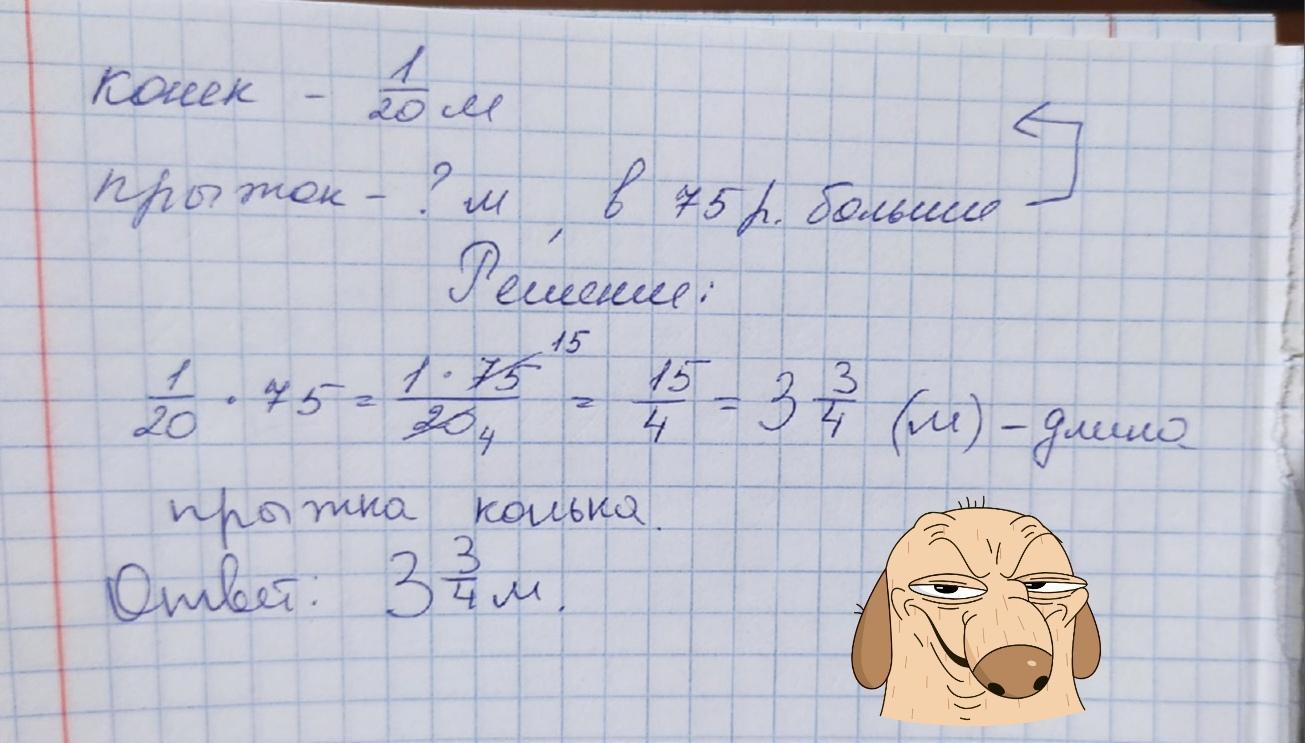 конек - 1/20 м
прыжок - ? м, в 75 р. больше
Решение:
1/20 · 75 = 1 · 75 15 / 20 4 = 15/4 = 3 3/4 (м) - длина
прыжка конька.
Ответ: 3 3/4 м.